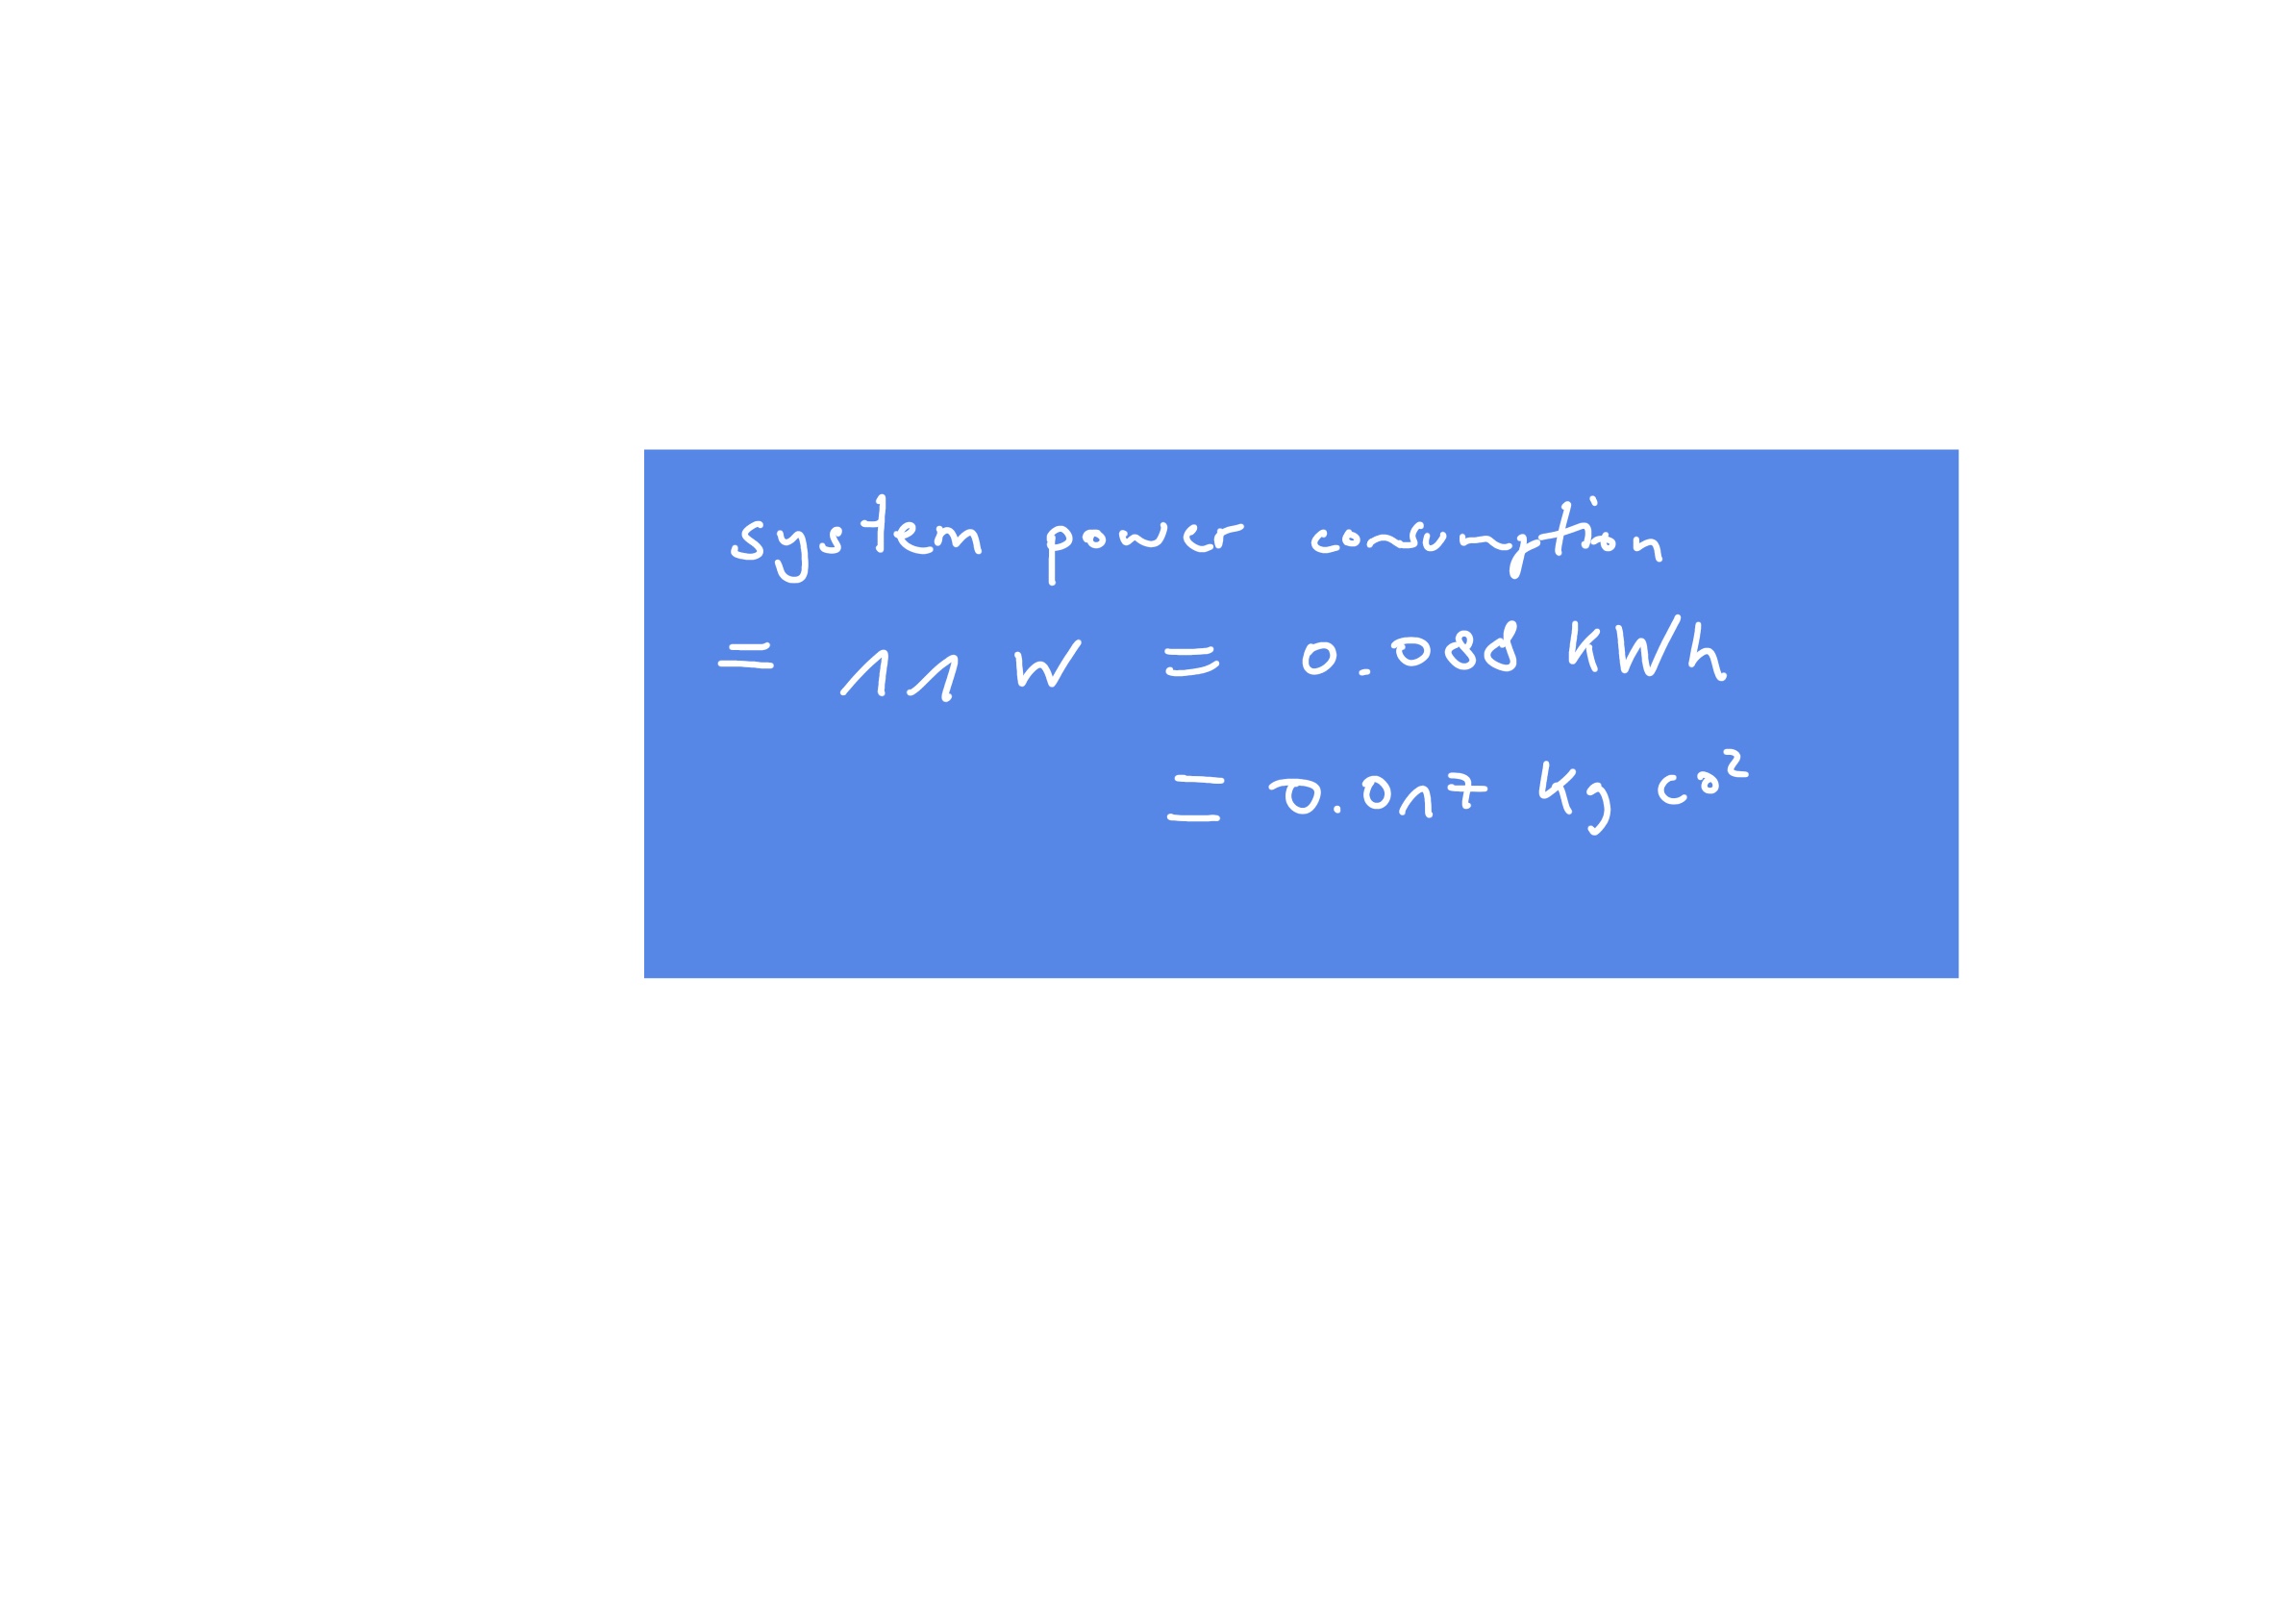 system power consumption
= 11 W = 0.088 kWh
= 0.017 kg co²